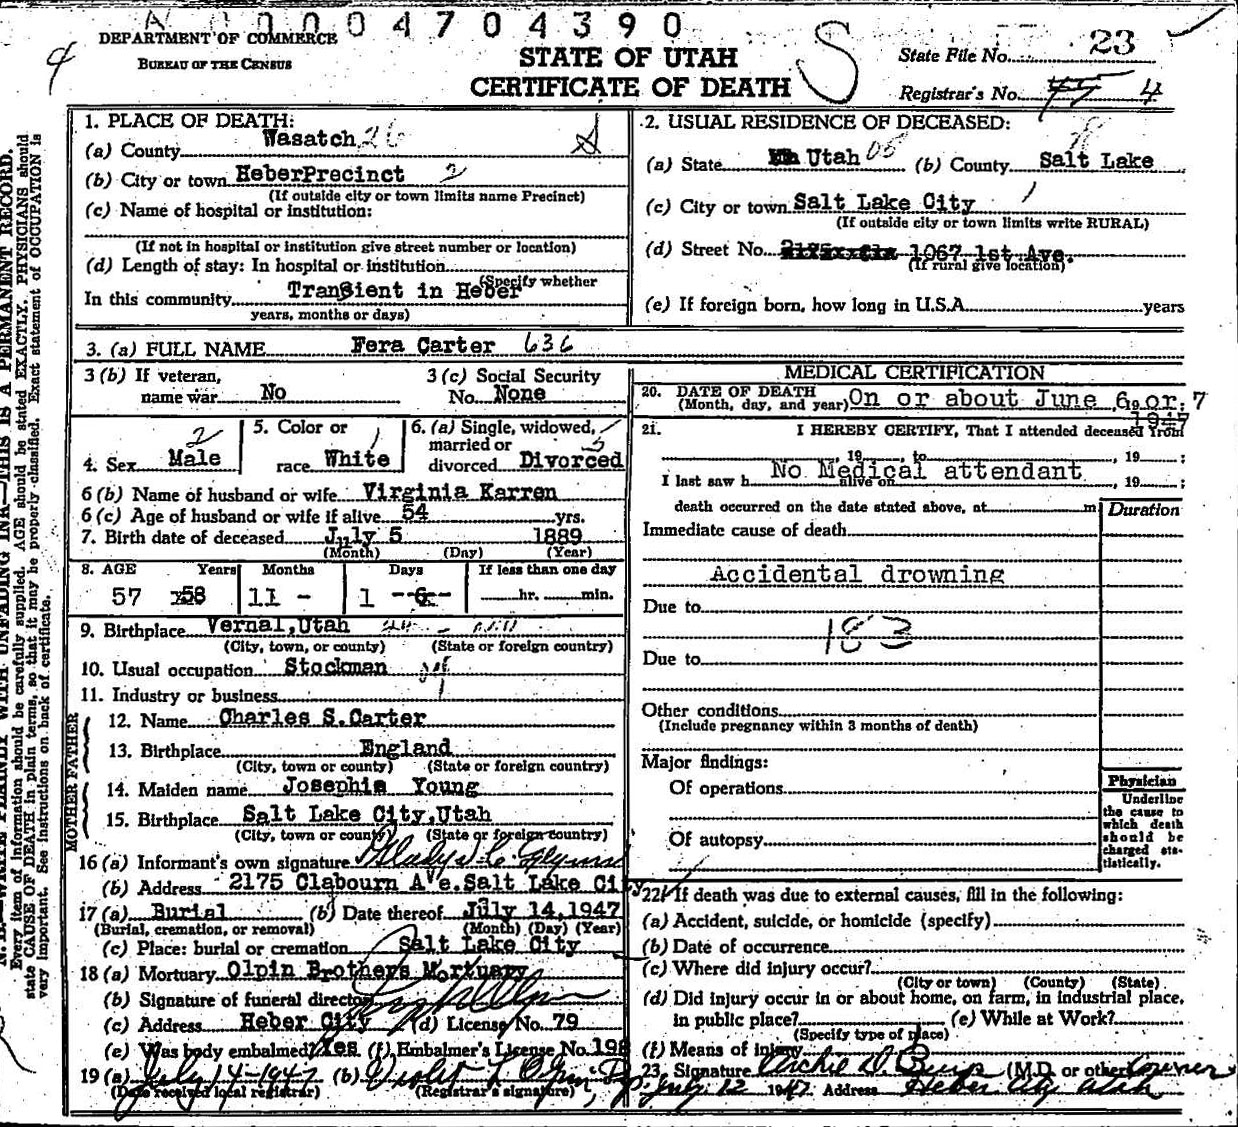 A 00004704390
DEPARTMENT OF COMMERCE
BUREAU OF THE CENSUS
STATE OF UTAH
CERTIFICATE OF DEATH
S
State File No. 23
Registrar's No. 4
1. PLACE OF DEATH:
(a) County Wasatch 26
(b) City or town HeberPrecinct 2
(If outside city or town limits name Precinct)
(c) Name of hospital or institution:
(If not in hospital or institution give street number or location)
(d) Length of stay: In hospital or institution
(Specify whether
In this community Transient in Heber
years, months or days)
2. USUAL RESIDENCE OF DECEASED:
(a) State Utah 05 (b) County Salt Lake
(c) City or town Salt Lake City 1
(If outside city or town limits write RURAL)
(d) Street No. 1067 1st Ave.
(If rural give location)
(e) If foreign born, how long in U.S.A. years
3. (a) FULL NAME Fera Carter 636
3 (b) If veteran, name war No
3 (c) Social Security No. None
4. Sex Male 2
5. Color or race White 1
6. (a) Single, widowed, married or divorced Divorced
6 (b) Name of husband or wife Virginia Karren
6 (c) Age of husband or wife if alive 54 yrs.
7. Birth date of deceased July 5 1889
(Month) (Day) (Year)
8. AGE Years Months Days If less than one day
57 58 11 - 1 --6- hr. min.
9. Birthplace Vernal,Utah
(City, town, or county) (State or foreign country)
10. Usual occupation Stockman
11. Industry or business
FATHER
12. Name Charles S.Carter
13. Birthplace England
(City, town or county) (State or foreign country)
MOTHER
14. Maiden name Josephia Young
15. Birthplace Salt Lake City,Utah
(City, town or county) (State or foreign country)
16 (a) Informant's own signature Gladys C.
(b) Address 2175 Clabourn Ave.Salt Lake City
17 (a) Burial (b) Date thereof July 14,1947
(Burial, cremation, or removal) (Month) (Day) (Year)
(c) Place: burial or cremation Salt Lake City
18 (a) Mortuary Olpin Brothers Mortuary
(b) Signature of funeral director
(c) Address Heber City (d) License No. 79
(e) Was body embalmed? Yes (f) Embalmer's License No. 198
19 (a) July 14-1947 (b) Violet L Olpin
(Date received local registrar) (Registrar's signature)
MEDICAL CERTIFICATION
20. DATE OF DEATH
(Month, day, and year) On or about June 6, or 7
1947
21. I HEREBY CERTIFY, That I attended deceased from
, 19 , to , 19 ;
I last saw h alive on , 19 ;
No Medical attendant
death occurred on the date stated above, at m
Duration
Immediate cause of death
Accidental drowning
Due to
183
Due to
Other conditions
(Include pregnancy within 3 months of death)
Major findings:
Of operations
Of autopsy
Physician
Underline the cause to which death should be charged statistically.
22. If death was due to external causes, fill in the following:
(a) Accident, suicide, or homicide (specify)
(b) Date of occurrence
(c) Where did injury occur?
(City or town) (County) (State)
(d) Did injury occur in or about home, on farm, in industrial place,
in public place? (e) While at Work?
(Specify type of place)
(f) Means of injury
23. Signature Archie D. (M.D. or other) Coroner
July 12 1947 Address Heber City Utah
N. B.—WRITE PLAINLY WITH UNFADING INK—THIS IS A PERMANENT RECORD.
Every item of information should be carefully supplied. AGE should be stated EXACTLY. PHYSICIANS should
state CAUSE OF DEATH in plain terms, so that it may be properly classified. Exact statement of OCCUPATION is
very important. See instructions on back of certificate.